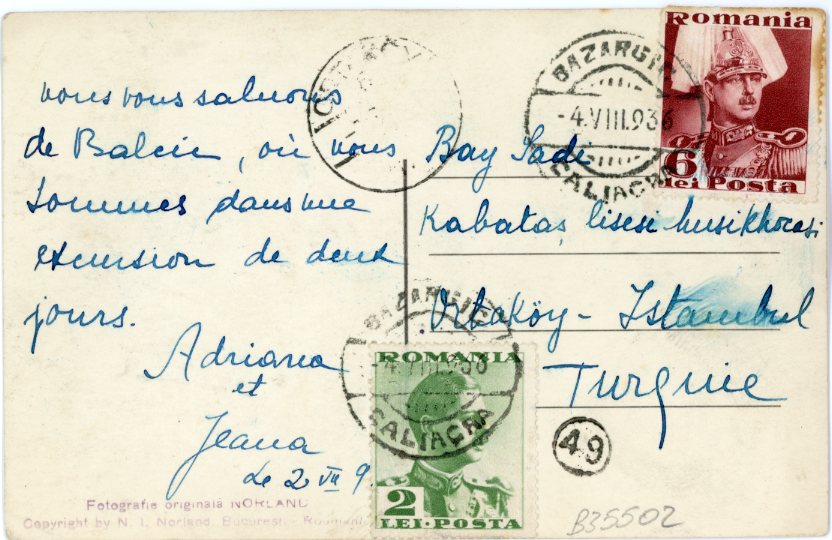 vous vous saluons
de Balcic, où nous
sommes dans une
excursion de deux
jours.
Adriana
et
Jeana
Le 2 VII 9
Fotografie originală NORLAND
Copyright by N. I. Norland, București - Roumani
Bay Sadi
Kabataş lisesi musikhocası
Ortaköy - Istanbul
Turquie
BAZARGIC
-4.VIII.936
CALIACRA
Romania
6
lei Posta
BAZARGIC
-4.VIII.936
CALIACRA
ROMANIA
2
LEI·POSTA
49
B35502